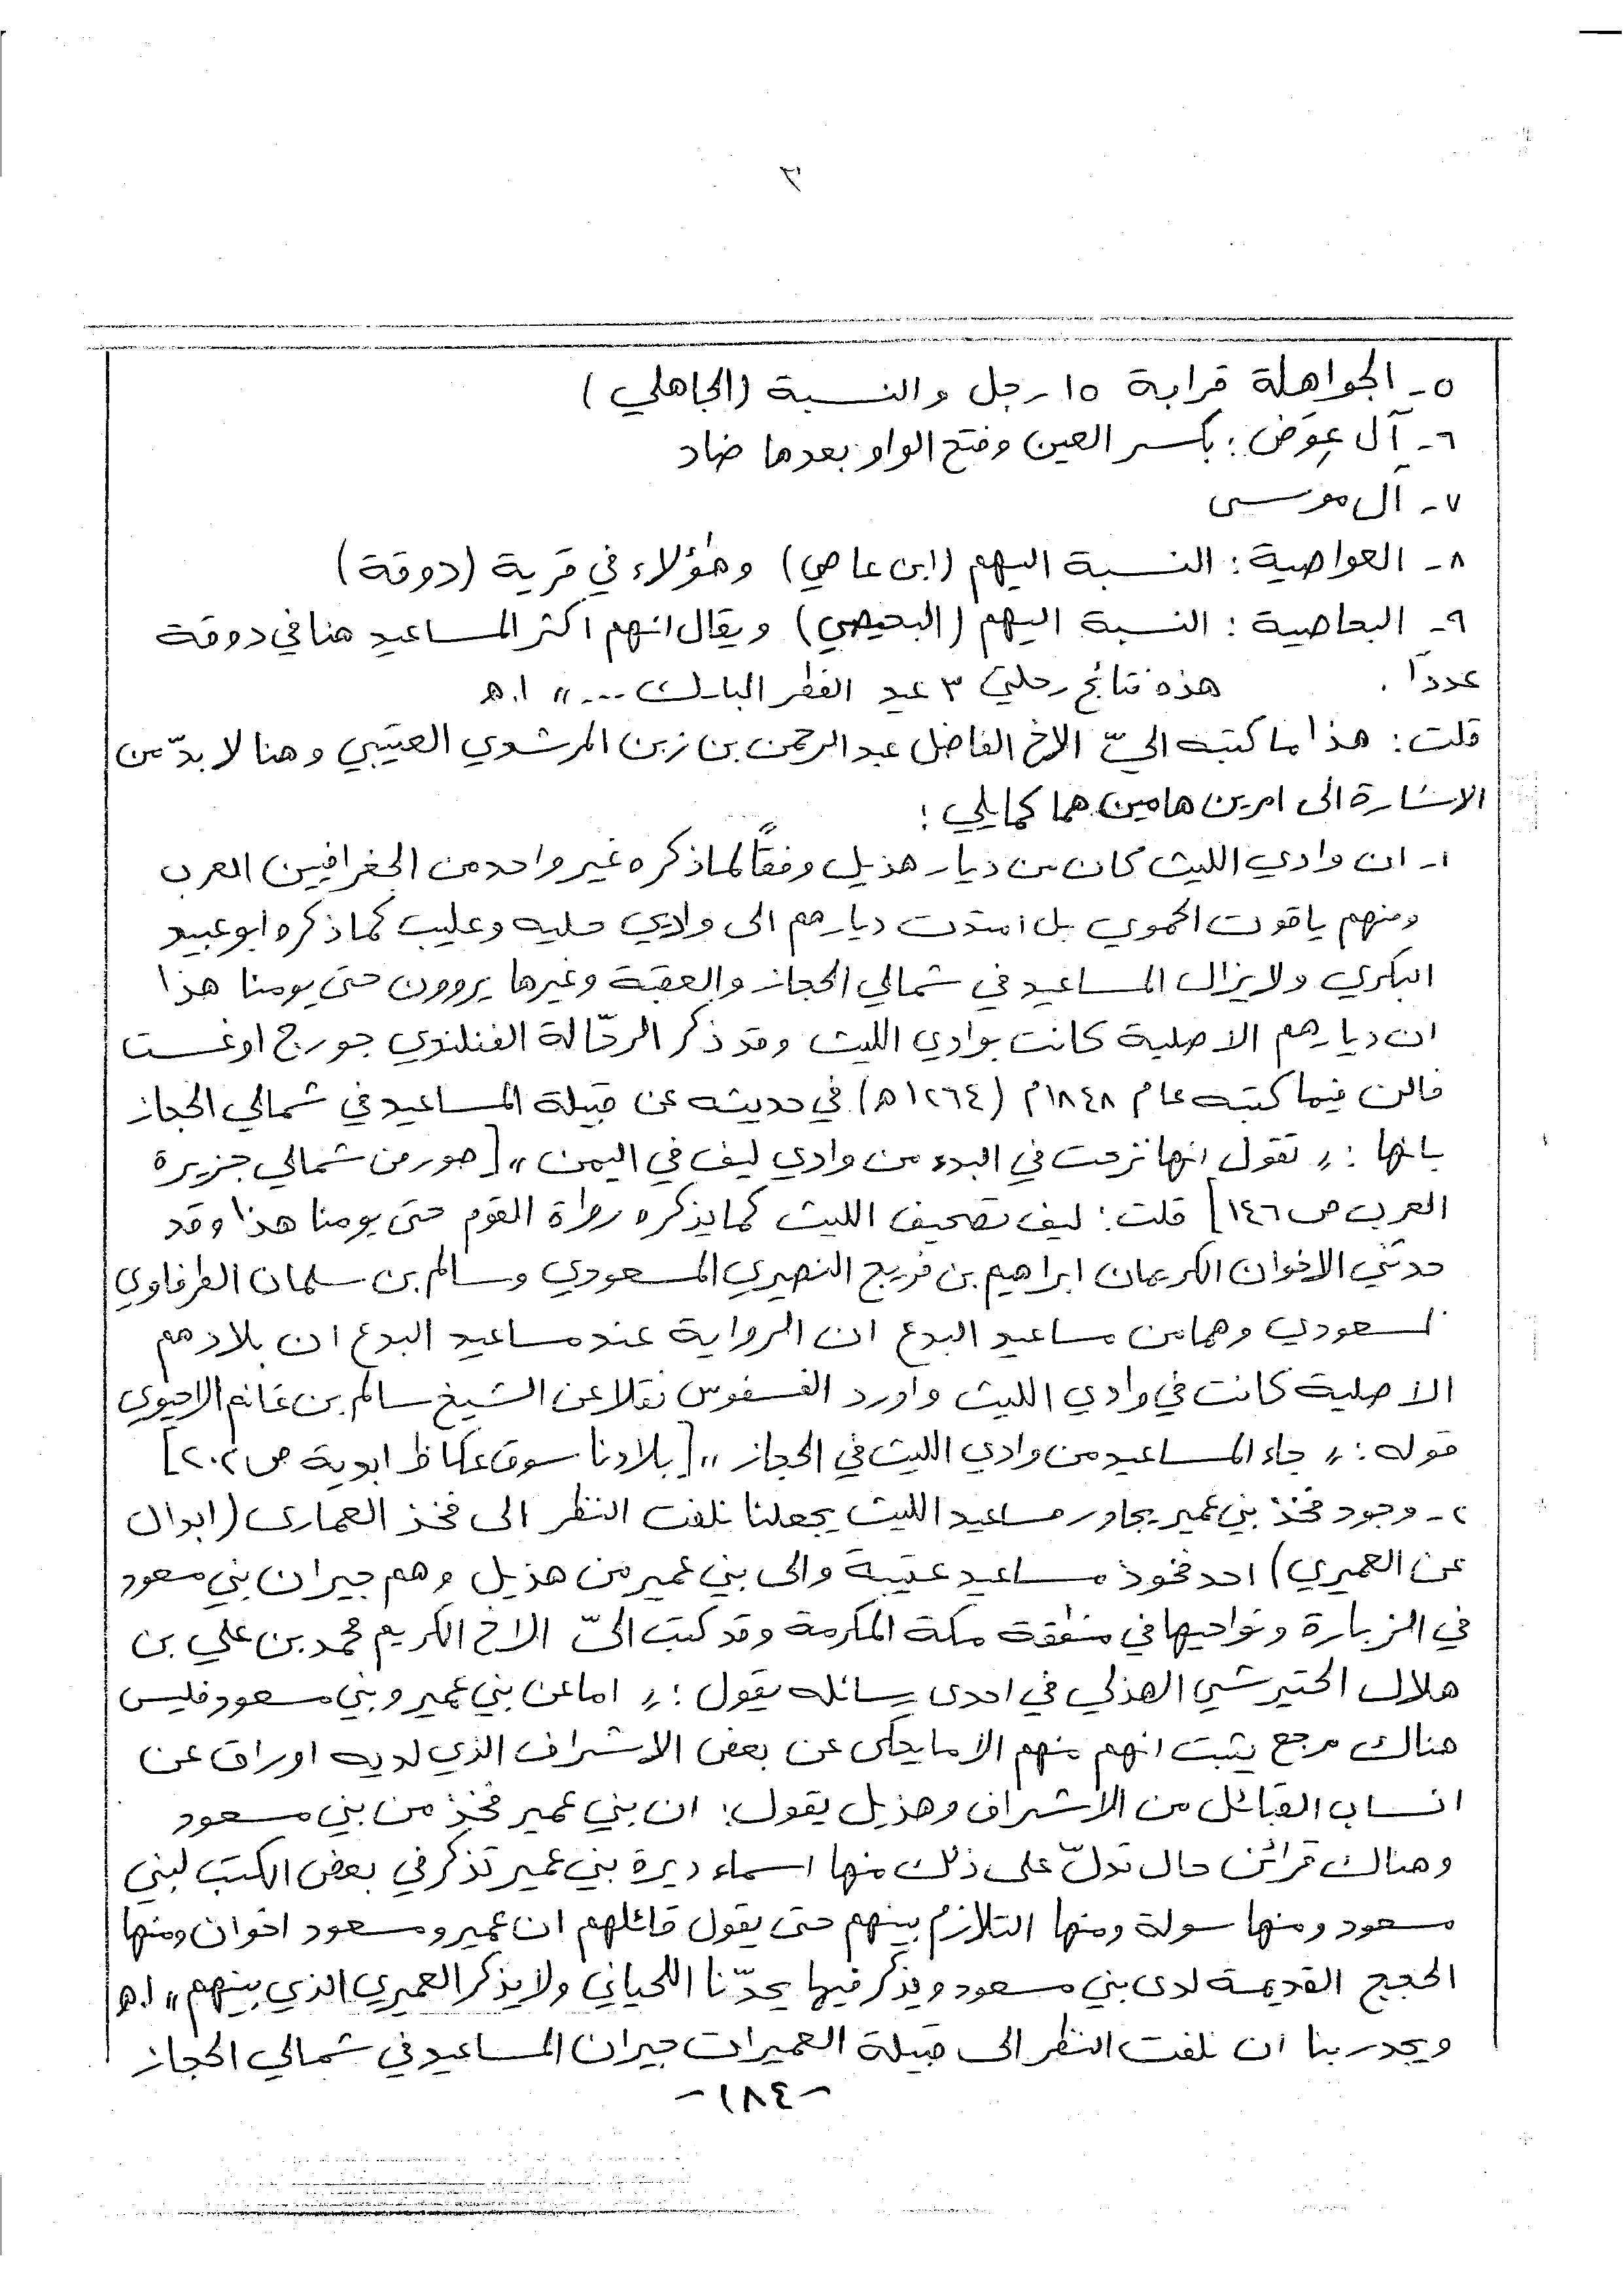 ٣
٥- الجواهلة قرابة ١٥ رجل والنسبة (الجاهلي)
٦- آل عِوَض : بكسر العين وفتح الواو بعدها ضاد
٧- آل موسى
٨- العواصية : النسبة اليهم (ابن عاصي) وهؤلاء في قرية (دوقة)
٩- البحاصية : النسبة اليهم (البحيصي) ويقال انهم اكثر المساعيد هنا في دوقة
عدداً . هذه نتائج رحلتي ٣ عيد الفطر المبارك ...» ا.ه
قلت : هذا ما كتبه اليّ الاخ الفاضل عبدالرحمن بن زبن المرشدي العتيبي وهنا لا بدّ من
الاشارة الى امرين هامين هما كمايلي :
١- ان وادي الليث كان من ديار هذيل وفقاً لماذكره غير واحد من الجغرافيين العرب
ومنهم ياقوت الحموي بل امتدت ديارهم الى وادي حليه وعليب كماذكره ابوعبيد
البكري ولايزال المساعيد في شمالي الحجاز والعقبة وغيرها يروون حتى يومنا هذا
ان ديارهم الاصلية كانت بوادي الليث وقد ذكر الرحّالة الفنلندي جورج اوغست
فالن فيما كتبه عام ١٨٤٨م (١٢٦٤ه) في حديثه عن قبيلة المساعيد في شمالي الحجاز
بانها : « تقول انها نزحت في البدء من وادي ليف في اليمن » [صور من شمالي جزيرة
العرب ص ١٤٦] قلت : ليف تصحيف الليث كمايذكره رواة القوم حتى يومنا هذا وقد
حدثني الاخوان الكريمان ابراهيم بن فريج النصيري المسعودي وسالم بن سلمان الطرفاوي
المسعودي وهما من مساعيد البدع ان الرواية عند مساعيد البدع ان بلادهم
الاصلية كانت في وادي الليث واورد القسفوس نقلا عن الشيخ سالم بن غانم الاحيوي
قوله : « جاء المساعيد من وادي الليث في الحجاز » [بلادنا سوق عكاظ ابدية ص ٢٠٢]
٢- وجود فخذ بني عمير يجاور مساعيد الليث يجعلنا نلفت النظر الى فخذ العمارى (ابدال
عن العميري) احد فخوذ مساعيد عتيبة والى بني عمير من هذيل وهم جيران بني مسعود
في الزبارة ونواحيها في منطقة مكة المكرمة وقد كتب اليّ الاخ الكريم محمد بن علي بن
هلال الحتيرشي الهذلي في احدى رسائله يقول : « اما عن بني عمير وبني مسعود فليس
هناك مرجع يثبت انهم منهم الا مايحكى عن بعض الاشراف الذي لديه اوراق عن
انساب القبائل من الاشراف وهذيل يقول : ان بني عمير فخذ من بني مسعود
وهناك قرائن حال تدلّ على ذلك منها اسماء ديرة بني عمير تذكر في بعض الكتب لبني
مسعود ومنها سولة ومنها التلازم بينهم حتى يقول قائلهم ان عمير ومسعود اخوان ومنها
الحجج القديمة لدى بني مسعود ويذكر فيها يحدّنا اللحياني ولايذكر العميري الذي بينهم » ا.ه
ويجدر بنا ان نلفت النظر الى قبيلة العميرات جيران المساعيد في شمالي الحجاز
-١٨٤-